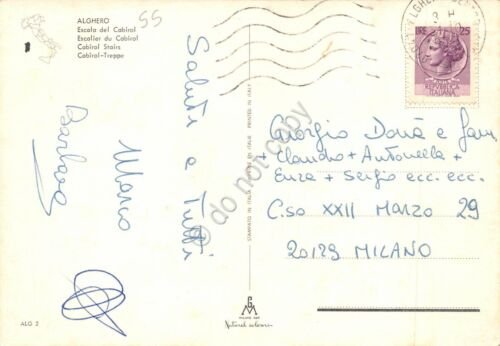 ALGHERO
Escala del Cabirol
Escalier du Cabirol
Cabirol Stairs
Cabirol-Treppe
55
Saluti a Tutti
Mario
Barbara
ALG 2
STAMPATO IN ITALIA
PRINTED IN ITALY
GM
MILANO
Natural colours
LIRE 25
REPVBBLICA
ITALIANA
Giorgio Donà e fam
+ Claudio + Antonella +
Enza + Sergio ecc. ecc.
C.so XXII Marzo 29
20129 MILANO
© do not copy